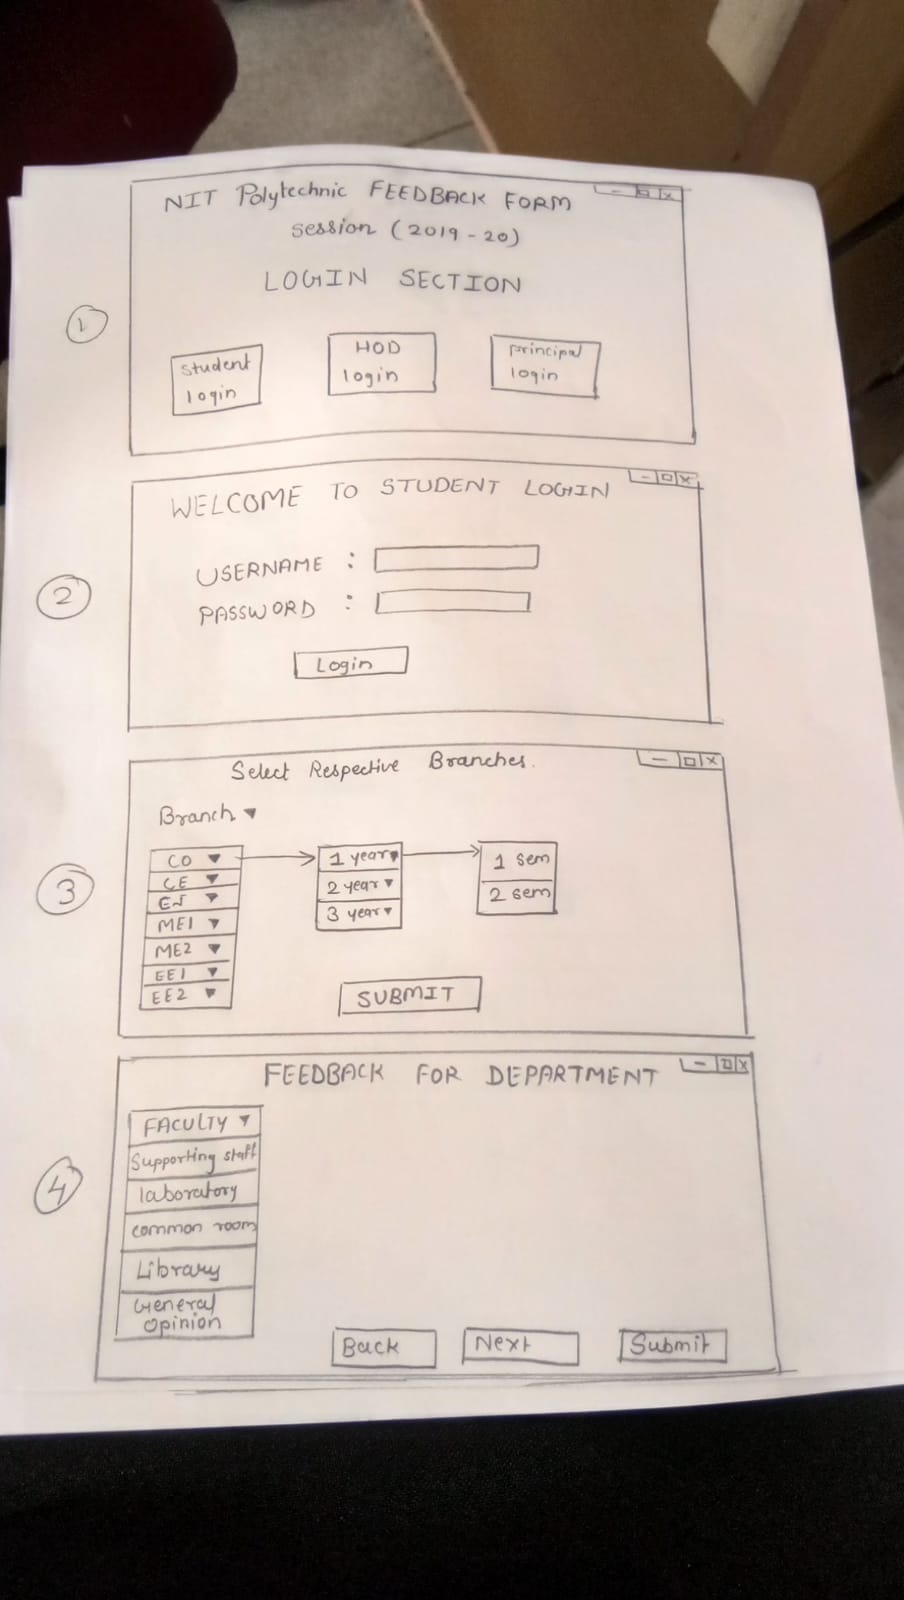 NIT Polytechnic FEEDBACK FORM
session (2019-20)
LOGIN SECTION
1
student
login
HOD
login
principal
login
WELCOME TO STUDENT LOGIN
2
USERNAME :
PASSWORD :
Login
Select Respective Branches.
Branch ▼
3
CO ▼
CE ▼
EJ ▼
ME1 ▼
ME2 ▼
EE1 ▼
EE2 ▼
1 year ▼
2 year ▼
3 year ▼
1 sem
2 sem
SUBMIT
FEEDBACK FOR DEPARTMENT
4
FACULTY ▼
Supporting staff
laboratory
common room
Library
General
opinion
Back
Next
Submit